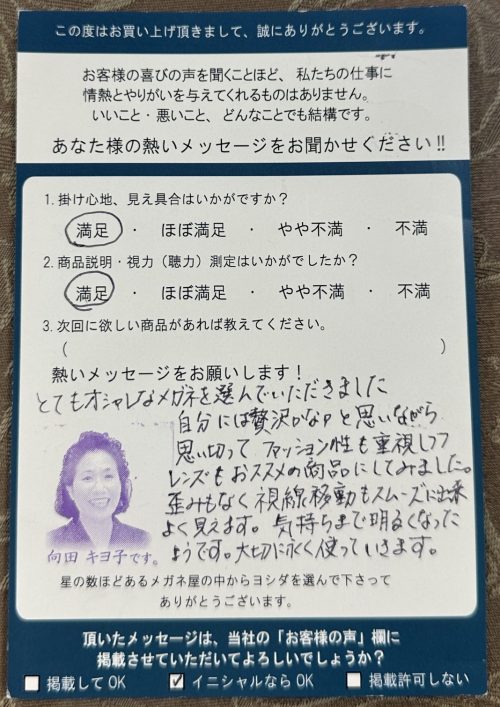 この度はお買い上げ頂きまして、誠にありがとうございます。
お客様の喜びの声を聞くことほど、私たちの仕事に
情熱とやりがいを与えてくれるものはありません。
いいこと・悪いこと、どんなことでも結構です。
あなた様の熱いメッセージをお聞かせください!!
1. 掛け心地、見え具合はいかがですか？
満足 ・ ほぼ満足 ・ やや不満 ・ 不満
2. 商品説明・視力（聴力）測定はいかがでしたか？
満足 ・ ほぼ満足 ・ やや不満 ・ 不満
3. 次回に欲しい商品があれば教えてください。
（ ）
熱いメッセージをお願いします！
とてもオシャレなメガネを選んでいただきました
自分には贅沢かなァと思いながら
思い切ってファッション性も重視しつつ
レンズもおススメの商品にしてみました。
歪みもなく視線移動もスムーズに出来
よく見えます。気持ちまで明るくなった
ようです。大切に永く使っていきます。
向田 キヨ子です。
星の数ほどあるメガネ屋の中からヨシダを選んで下さって
ありがとうございます。
頂いたメッセージは、当社の「お客様の声」欄に
掲載させていただいてよろしいでしょうか？
掲載して OK イニシャルなら OK 掲載許可しない